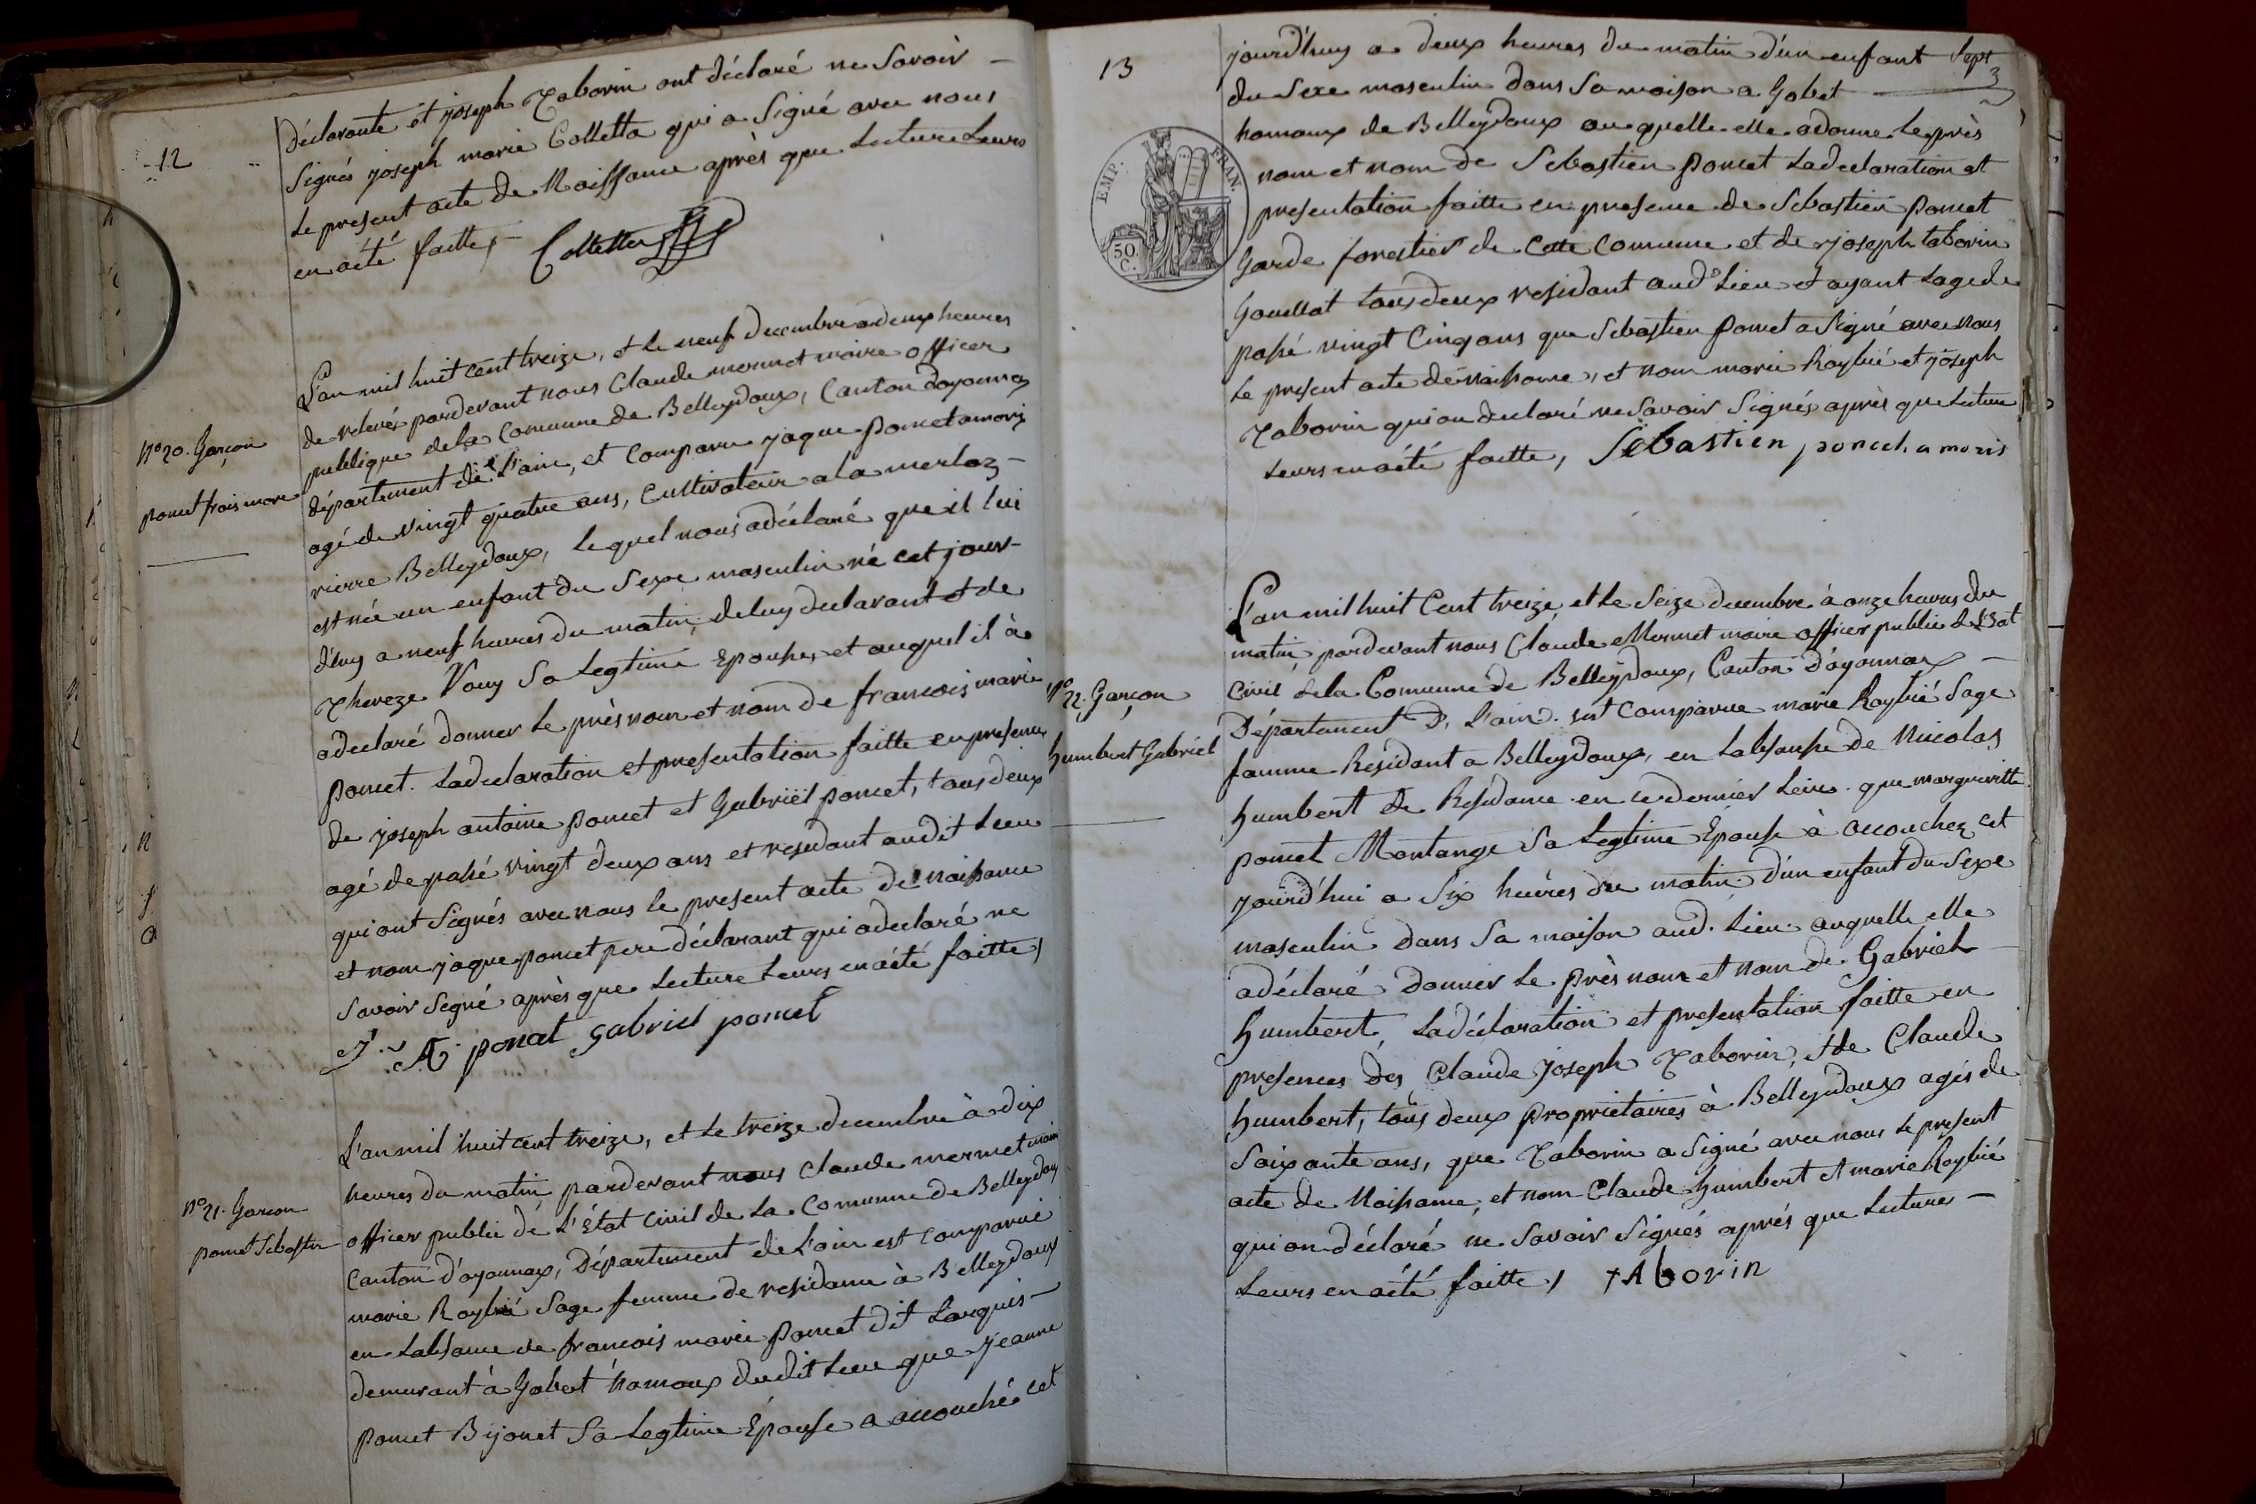 12
déclarante et joseph Taborin ont déclaré ne Savoir
Signés joseph marie Colletta qui a Signé avec nous
Le present acte de Naissance après que Lecture Leurs
en aété faitte,
Colletta
N° 20. Garçon
poncet frois marie
L'an mil huit cent treize, et le neuf decembre a deux heures
de relevée pardevant nous Claude mermet maire officer
publique dela Comunne de Belleydoux, Canton doyonnax
département de L'ain, et Comparu jaque poncet amoris
agé de vingt quatre ans, Cultivateur a la merloz
rierre Belleydoux, lequel nous adéclaré que il lui
est née un enfant du Sexe masculin né cet jour-
d'huy a neuf heures du matin, deluy declarant et de
Thereze Vouy Sa Legtime Epouse, et auquel il à
adeclaré donner le près nom et nom de francois marie
poncet. Ladeclaration et presentation faitte en presence
de joseph antoine poncet et Gabriël poncet, tous deux
agé de passé vingt deux ans et residant audit Lieu
qui ont Signés avec nous le present acte de naissance
et nom jaque poncet pere déclarant qui adeclaré ne
Savoir Segné après que Lecture Leurs en aété faitte,
poncet gabriel poncet
N° 21. Garcon
poncet Sebastin
L'an mil huit cent treize, et le treize decembre à dix
heures du matin pardevant nous Claude mermet maire
officier public de L'État Civil de La Comunne de Belleydoux
Canton d'oyonnax, Département de L'ain est Comparue
marie Roybié Sage femme de residance à Belleydoux
en Labsance de francois marie poncet dit Larquis
demurant à Gobet hamaux dudit Lieu que jeanne
poncet Bijonet Sa Legtime Épouse a accouché cet
13
jourd'huy a deux heures du matin d'un enfant Sept
du Sexe masculin dans Sa maison a Gobet
hamaux de Belleydoux au quelle elle adonne le près
nom et nom de Sebastien poncet Ladeclaration et
presentation faitte en presence de Sebastien poncet
Garde forestier de Cette Comunne et de joseph taborin
Gouillot tous deux residant aud. Lieu et ayant Lage de
passé vingt Cinq ans que Sebastien poncet a Signé avec nous
Le present acte de naissance, et nom marie Roybié et joseph
Taborin qui on declaré ne Savoir Signés après que Lecture
Leurs en aété faitte, Sébastien poncet amoris
EMP. FRAN.
50. C.
N° 22. Garçon
humbert Gabriel
L'an mil huit Cent treize et le Seize decembre à onze heures du
matin, pardevant nous Claude Mermet maire officier public de L'Etat
Civil dela Comunne de Belleydoux, Canton d'oyonnax
Département D. L'ain. est Comparue marie Roybié Sage
famme Residant a Belleydoux, en Labsanse de Nicolas
humbert de Residance en cedernier Leiu. que marguéritte
poncet Montange Sa Legtime Epouse à accouchez cet
jourd'hui a Six heures du matin d'un enfant du Sexe
masculin dans Sa maison aud. Lieu auquelle elle
adéclaré donner le près nom et nom de Gabriel
humbert, Ladéclaration et presentation faitte en
presences des Claude joseph Taborin, et de Claude
humbert, tous deux proprietaires à Belleydoux agés de
Soixante ans, que Taborin a Signé avec nous le present
acte de Naissance, et nom Claude humbert et marie Roybié
qui on déclaré ne Savoir Signés après que Lectures
Leurs en aété faitte,
tAborin